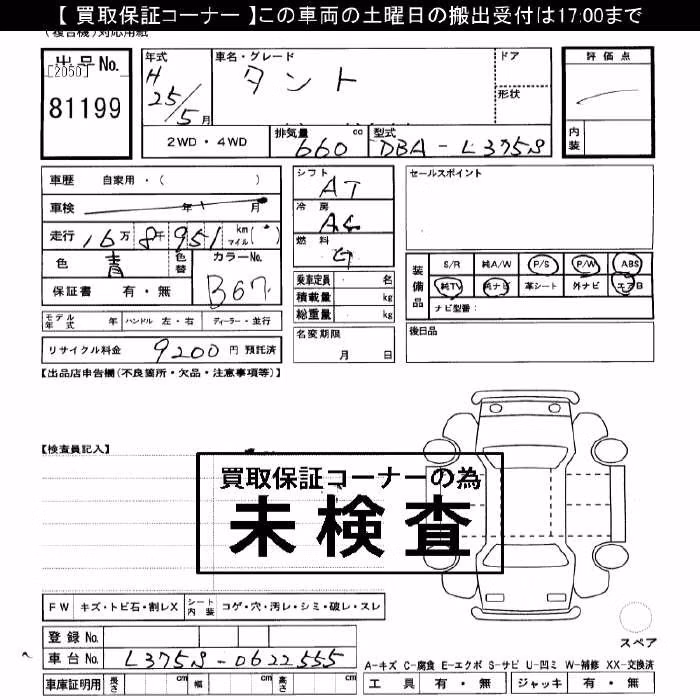 【 買取保証コーナー 】この車両の土曜日の搬出受付は17:00まで
(複合機)対応用紙
出品No.
[2050]
81199
年式
H
25/5月
車名・グレード
タント
ドア
形状
評価点
内装
2WD・4WD
排気量 660 cc
型式 DBA-L375S
車歴 自家用・( )
車検 年 月
走行 16万8千951 km マイル( )
色 青 色替 カラーNo. B67
保証書 有・無
シフト AT
冷房 AC
燃料
乗車定員 名
積載量 kg
総重量 kg
名変期限
月 日
セールスポイント
装備品
S/R 純A/W P/S P/W ABS
純TV 純ナビ 革シート 外ナビ エアB
ナビ型番:
後日品
モデル年式 年 ハンドル 左・右 ディーラー・並行
リサイクル料金 9200 円 預託済
【出品店申告欄(不良箇所・欠品・注意事項等)】
【検査員記入】
買取保証コーナーの為
未検査
FW キズ・トビ石・割レX シート内装 コゲ・穴・汚レ・シミ・破レ・スレ
登録No.
車台No. L375S-0622555
車庫証明用 長さ cm 幅 cm 高さ cm
スペア
A-キズ C-腐食 E-エクボ S-サビ U-凹ミ W-補修 XX-交換済
工具 有・無 ジャッキ 有・無